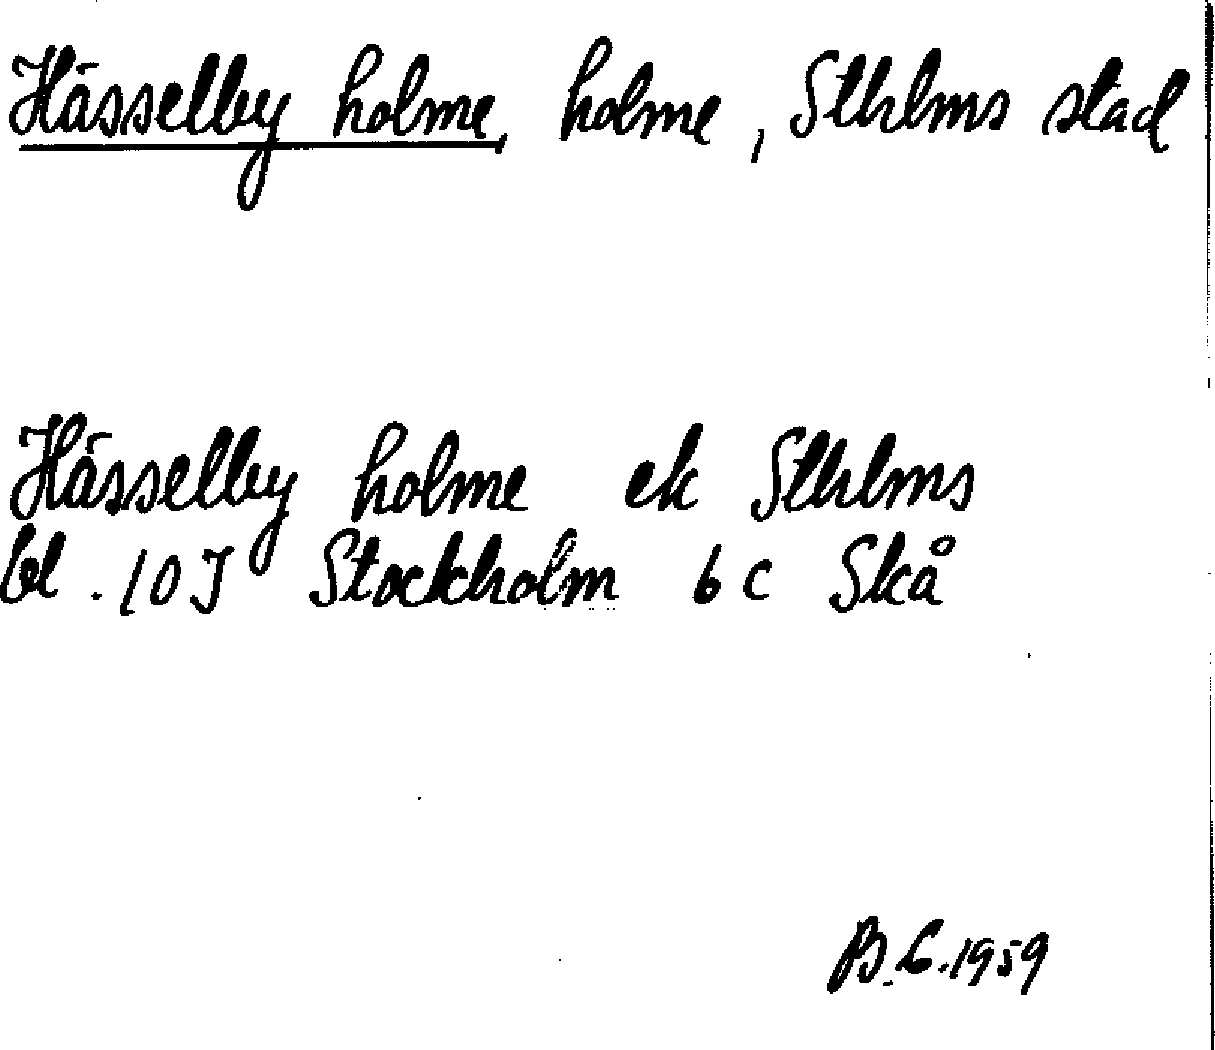 Hässelby holme, holme, Sthlms stad
Hässelby holme ek Sthlms
bl. 10J Stockholm 6c Skå
B.L.1959